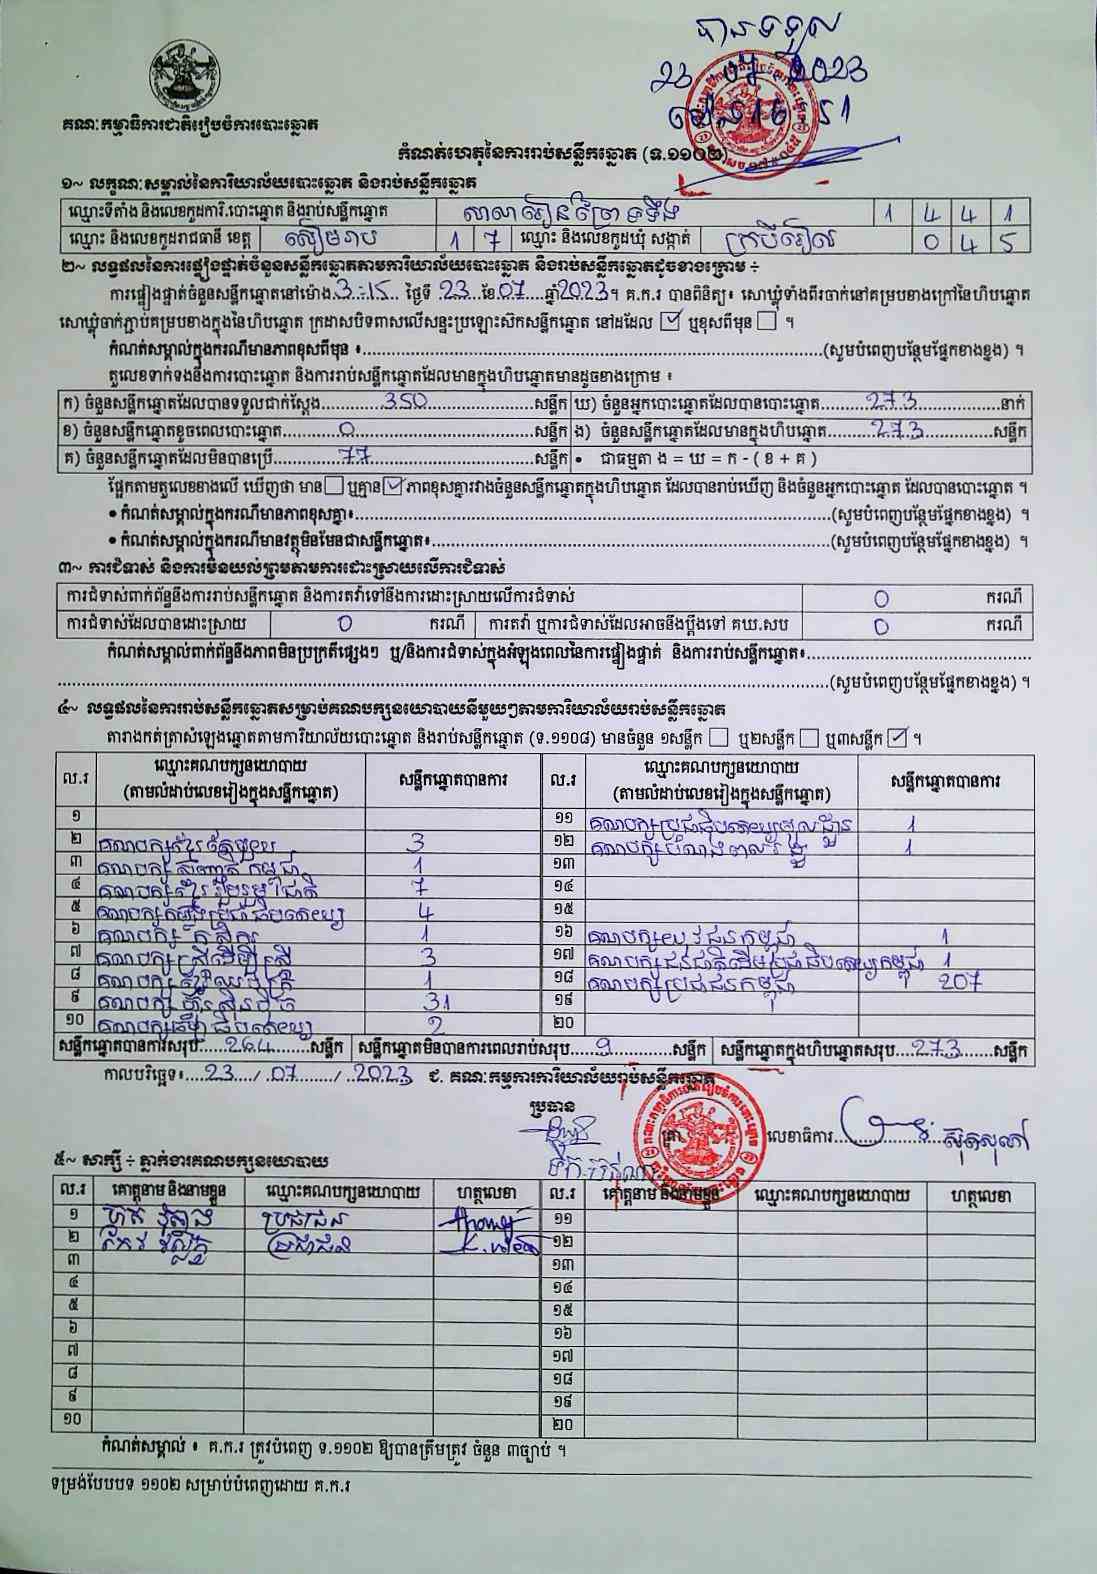 បានទទួល
23 07 2023
ម៉ោង 16 : 51
គណៈកម្មាធិការជាតិរៀបចំការបោះឆ្នោត
កំណត់ហេតុនៃការរាប់សន្លឹកឆ្នោត (ទ.១១០២)
១~ លក្ខណៈសម្គាល់នៃការិយាល័យបោះឆ្នោត និងរាប់សន្លឹកឆ្នោត
ឈ្មោះទីតាំង និងលេខកូដការិ.បោះឆ្នោត និងរាប់សន្លឹកឆ្នោត សាលារៀនព្រៃទទឹង 1 4 4 1
ឈ្មោះ និងលេខកូដរាជធានី ខេត្ត សៀមរាប 1 7 ឈ្មោះ និងលេខកូដឃុំ សង្កាត់ ក្របីរៀល 0 4 5
២~ លទ្ធផលនៃការផ្ទៀងផ្ទាត់ចំនួនសន្លឹកឆ្នោតតាមការិយាល័យបោះឆ្នោត និងរាប់សន្លឹកឆ្នោតដូចខាងក្រោម ÷
ការផ្ទៀងផ្ទាត់ចំនួនសន្លឹកឆ្នោតនៅម៉ោង 3:15 ថ្ងៃទី 23 ខែ 07 ឆ្នាំ 2023។ គ.ក.រ បានពិនិត្យ៖ សោឃ្លុំទាំងពីរចាក់នៅគម្របខាងក្រៅនៃហិបឆ្នោត
សោឃ្លុំចាក់ភ្ជាប់គម្របខាងក្នុងនៃហិបឆ្នោត ក្រដាសបិទពាសលើសន្ទះប្រឡោះស៊កសន្លឹកឆ្នោត នៅដដែល ☑ ឬខុសពីមុន ☐ ។
កំណត់សម្គាល់ក្នុងករណីមានភាពខុសពីមុន ៖..........(សូមបំពេញបន្ថែមផ្នែកខាងខ្នង) ។
តួលេខទាក់ទងនឹងការបោះឆ្នោត និងការរាប់សន្លឹកឆ្នោតដែលមានក្នុងហិបឆ្នោតមានដូចខាងក្រោម ៖
ក) ចំនួនសន្លឹកឆ្នោតដែលបានទទួលជាក់ស្ដែង 350 សន្លឹក ឃ) ចំនួនអ្នកបោះឆ្នោតដែលបានបោះឆ្នោត 273 នាក់
ខ) ចំនួនសន្លឹកឆ្នោតខូចពេលបោះឆ្នោត 0 សន្លឹក ង) ចំនួនសន្លឹកឆ្នោតដែលមានក្នុងហិបឆ្នោត 273 សន្លឹក
គ) ចំនួនសន្លឹកឆ្នោតដែលមិនបានប្រើ 77 សន្លឹក • ជាធម្មតា ង = ឃ = ក - ( ខ + គ )
ផ្អែកតាមតួលេខខាងលើ ឃើញថា មាន ☐ ឬគ្មាន ☑ ភាពខុសគ្នារវាងចំនួនសន្លឹកឆ្នោតក្នុងហិបឆ្នោត ដែលបានរាប់ឃើញ និងចំនួនអ្នកបោះឆ្នោត ដែលបានបោះឆ្នោត ។
• កំណត់សម្គាល់ក្នុងករណីមានភាពខុសគ្នា៖..........(សូមបំពេញបន្ថែមផ្នែកខាងខ្នង) ។
• កំណត់សម្គាល់ក្នុងករណីមានវត្ថុមិនមែនជាសន្លឹកឆ្នោត៖..........(សូមបំពេញបន្ថែមផ្នែកខាងខ្នង) ។
៣~ ការជំទាស់ និងការមិនយល់ព្រមតាមការដោះស្រាយលើការជំទាស់
ការជំទាស់ពាក់ព័ន្ធនឹងការរាប់សន្លឹកឆ្នោត និងការតវ៉ាទៅនឹងការដោះស្រាយលើការជំទាស់ 0 ករណី
ការជំទាស់ដែលបានដោះស្រាយ 0 ករណី ការតវ៉ា ឬការជំទាស់ដែលអាចនឹងប្ដឹងទៅ គឃ.សប 0 ករណី
កំណត់សម្គាល់ពាក់ព័ន្ធនឹងភាពមិនប្រក្រតីផ្សេងៗ ឬ/និងការជំទាស់ក្នុងអំឡុងពេលនៃការផ្ទៀងផ្ទាត់ និងការរាប់សន្លឹកឆ្នោត៖..........
..........(សូមបំពេញបន្ថែមផ្នែកខាងខ្នង) ។
៤~ លទ្ធផលនៃការរាប់សន្លឹកឆ្នោតសម្រាប់គណបក្សនយោបាយនីមួយៗតាមការិយាល័យរាប់សន្លឹកឆ្នោត
តារាងកត់ត្រាសំឡេងឆ្នោតតាមការិយាល័យបោះឆ្នោត និងរាប់សន្លឹកឆ្នោត (ទ.១១០៨) មានចំនួន ១សន្លឹក ☐ ឬ២សន្លឹក ☐ ឬ៣សន្លឹក ☑ ។
ល.រ ឈ្មោះគណបក្សនយោបាយ (តាមលំដាប់លេខរៀងក្នុងសន្លឹកឆ្នោត) សន្លឹកឆ្នោតបានការ ល.រ ឈ្មោះគណបក្សនយោបាយ (តាមលំដាប់លេខរៀងក្នុងសន្លឹកឆ្នោត) សន្លឹកឆ្នោតបានការ
១ ១១ គណបក្សប្រជាធិបតេយ្យមូលដ្ឋាន 1
២ គណបក្សខ្មែរតែមួយ 3 ១២ គណបក្សបំណងពលរដ្ឋ 1
៣ គណបក្សសញ្ជាតិកម្ពុជា 1 ១៣
៤ គណបក្សខ្មែររួបរួមជាតិ 7 ១៤
៥ គណបក្សកម្លាំងប្រជាធិបតេយ្យ 4 ១៥
៦ គណបក្សកសិករ 1 ១៦ គណបក្សយុវជនកម្ពុជា 1
៧ គណបក្សស្រ្តីដើម្បីស្រ្តី 3 ១៧ គណបក្សជនជាតិដើមប្រជាធិបតេយ្យកម្ពុជា 1
៨ គណបក្សខ្មែរឈប់ក្រ 1 ១៨ គណបក្សប្រជាជនកម្ពុជា 207
៩ គណបក្សហ៊្វុនស៊ិនប៉ិច 31 ១៩
១០ គណបក្សធម្មាធិបតេយ្យ 2 ២០
សន្លឹកឆ្នោតបានការសរុប 264 សន្លឹក សន្លឹកឆ្នោតមិនបានការពេលរាប់សរុប 9 សន្លឹក សន្លឹកឆ្នោតក្នុងហិបឆ្នោតសរុប 273 សន្លឹក
កាលបរិច្ឆេទ៖ 23 / 07 / 2023 ជ. គណៈកម្មការការិយាល័យរាប់សន្លឹកឆ្នោត
ប្រធាន
ត្រា លេខាធិការ
៥~ សាក្សី ÷ ភ្នាក់ងារគណបក្សនយោបាយ
ល.រ គោត្តនាម និងនាមខ្លួន ឈ្មោះគណបក្សនយោបាយ ហត្ថលេខា ល.រ គោត្តនាម និងនាមខ្លួន ឈ្មោះគណបក្សនយោបាយ ហត្ថលេខា
១ ប្រជាជន ១១
២ កែវ ប្រជាជន ១២
៣ ១៣
៤ ១៤
៥ ១៥
៦ ១៦
៧ ១៧
៨ ១៨
៩ ១៩
១០ ២០
កំណត់សម្គាល់ ៖ គ.ក.រ ត្រូវបំពេញ ទ.១១០២ ឱ្យបានត្រឹមត្រូវ ចំនួន ៣ច្បាប់ ។
ទម្រង់បែបបទ ១១០២ សម្រាប់បំពេញដោយ គ.ក.រ